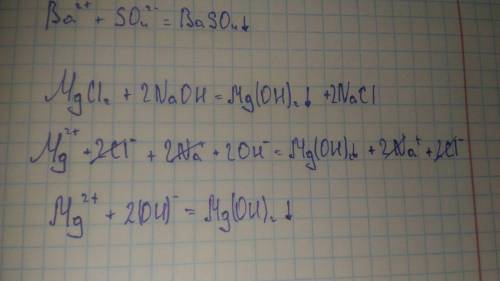 Ba²⁺ + SO₄²⁻ = BaSO₄↓
MgCl₂ + 2NaOH = Mg(OH)₂↓ + 2NaCl
Mg²⁺ + 2Cl⁻ + 2Na⁺ + 2OH⁻ = Mg(OH)₂↓ + 2Na⁺ + 2Cl⁻
Mg²⁺ + 2(OH)⁻ = Mg(OH)₂↓